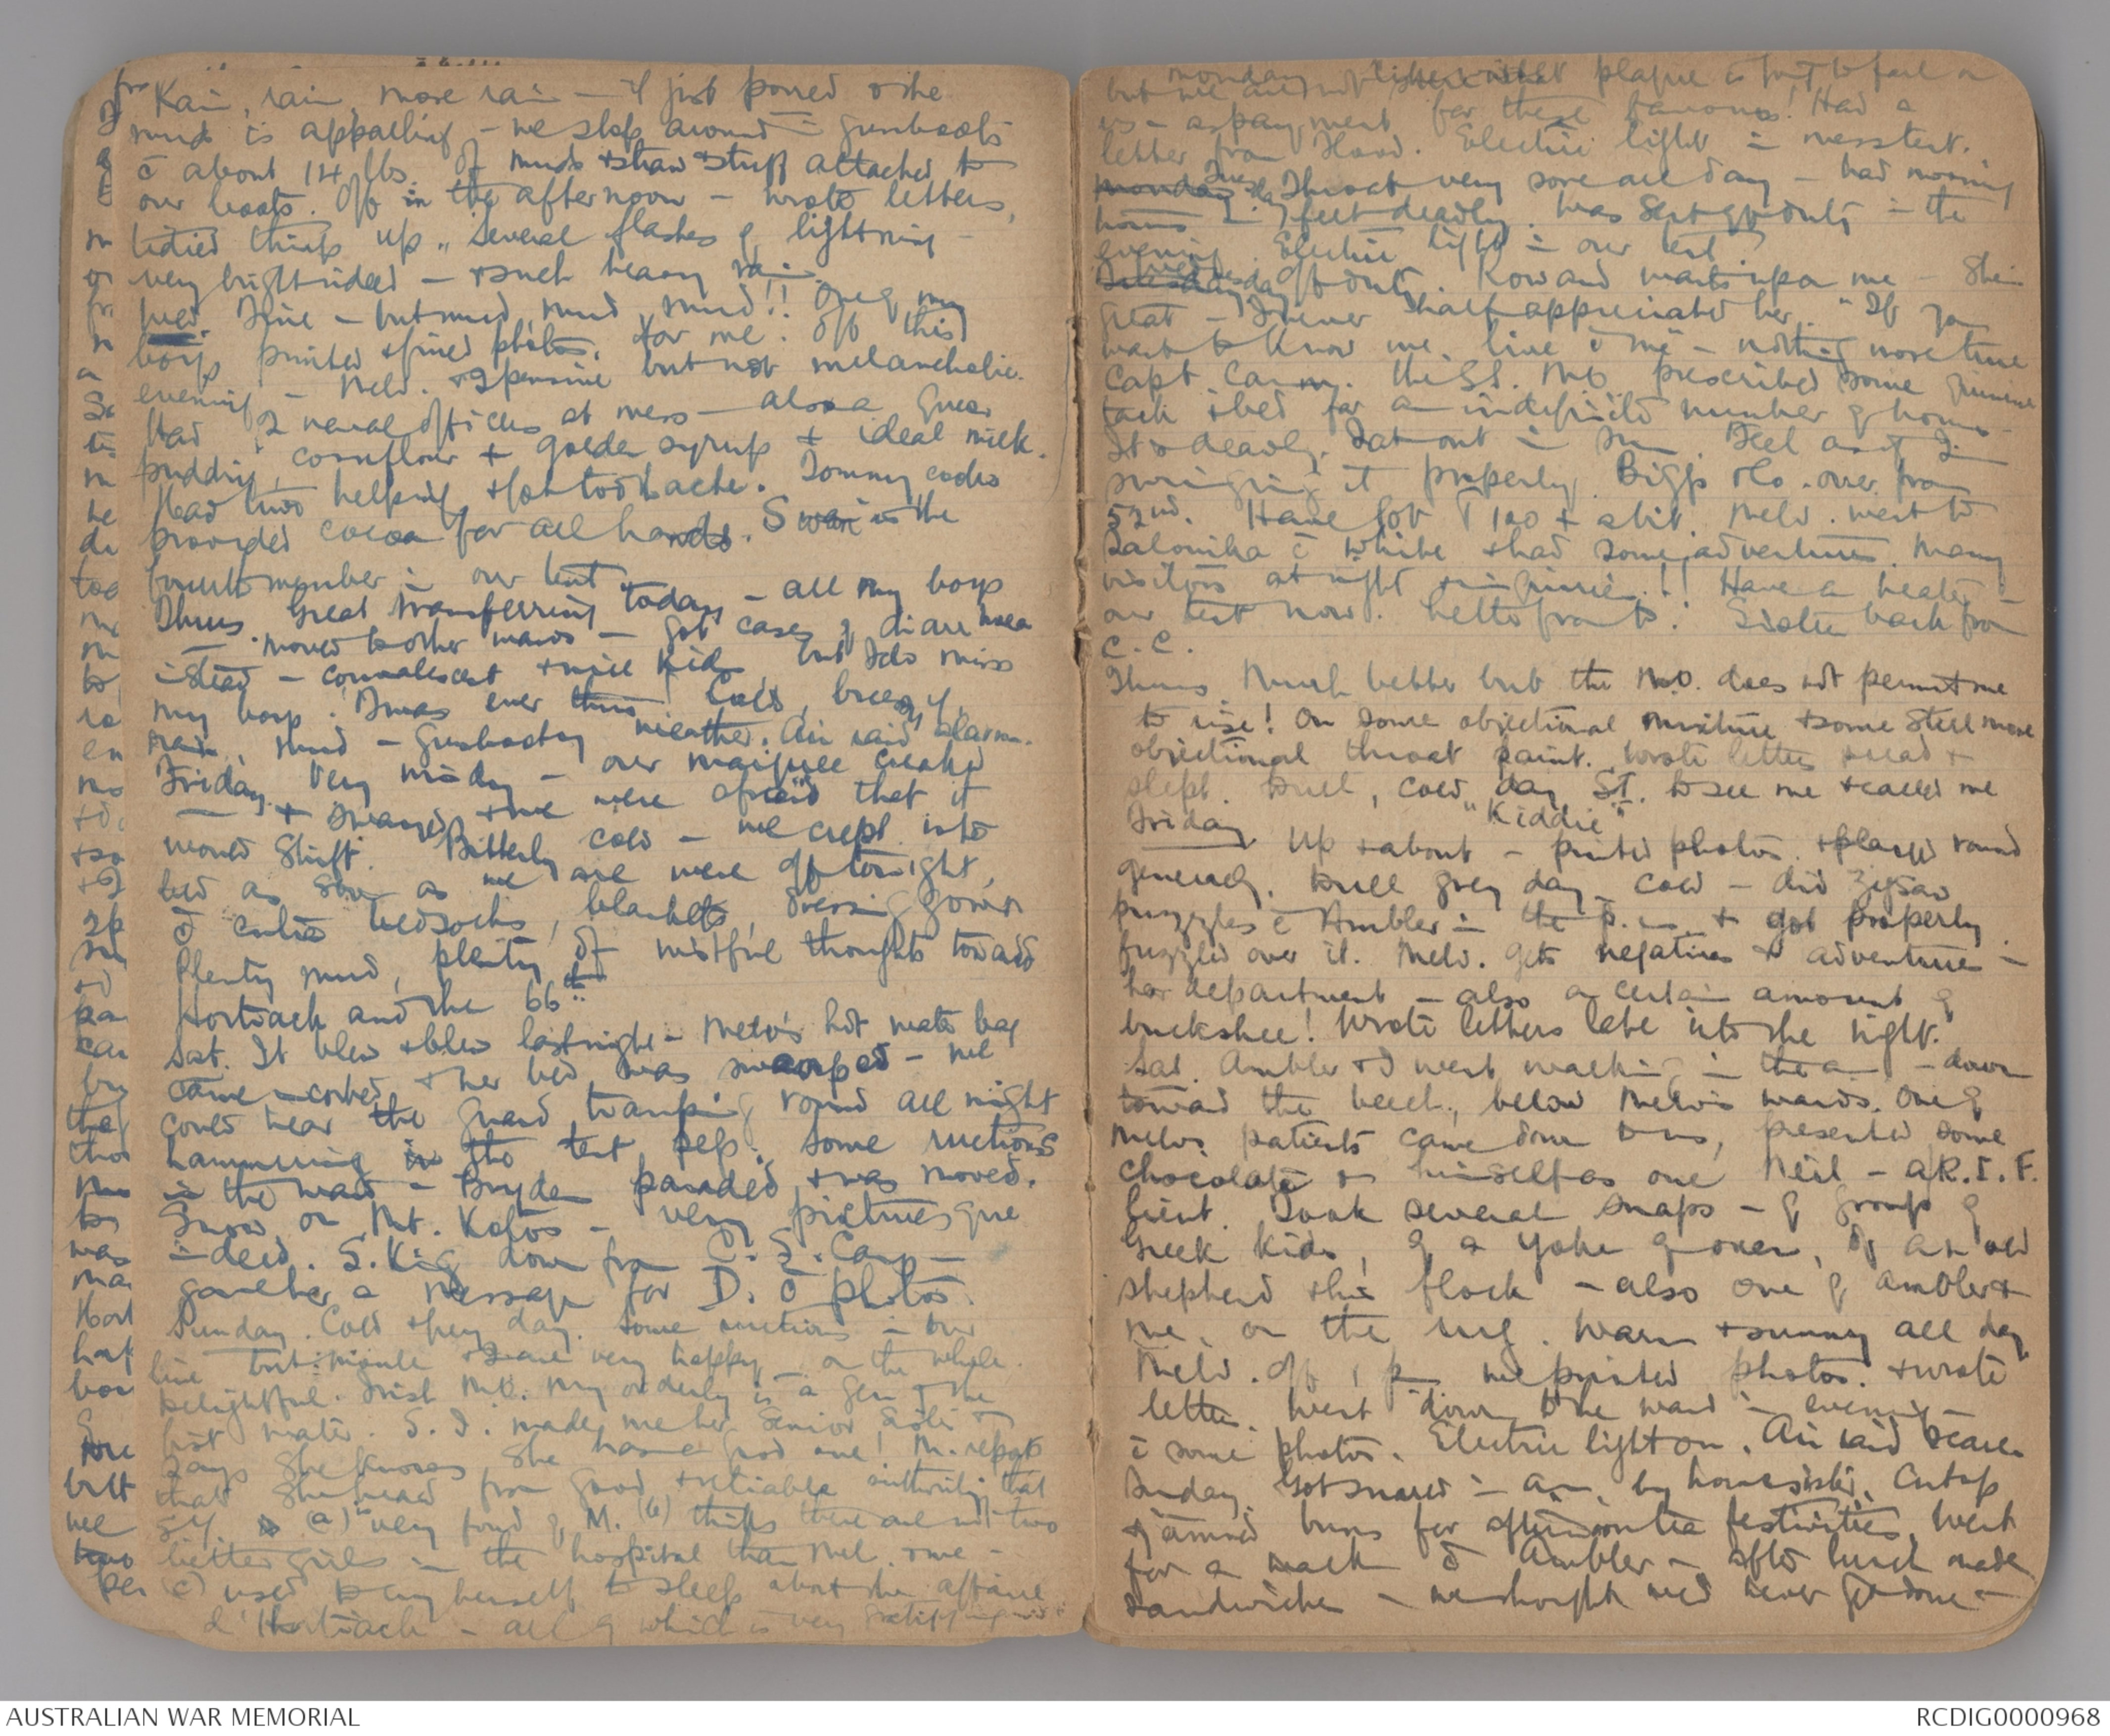 Rain, rain, more rain - it just poured & the
mud is appalling - we slop around in gumboots
c̄ about 14 lbs. of mud & straw & stuff attached to
our boots. Off in the afternoon - wrote letters,
tidied things up. Several flashes of lightning -
very bright indeed - & such heavy rain.
Wed. Fine - but mud, mud, mud!! One of my
boys printed & fixed photos. for me. Off this
evening - Melv. & I pensive but not melancholic.
Had 2 naval officers at mess - also a queer
pudding, cornflour & golden syrup & ideal milk.
Had two helpings & got toothache. Tommy cooks
provided cocoa for all hands. Swan is the
fourth member in our tent
Thurs. Great transferring today - all my boys
moved to other wards - got cases of diarrhoea
instead - convalescent & nice kids, but I do miss
my boys. Twas ever thus. Cold, breezy,
rain, mud - gumbooty weather. Air raid alarm.
Friday. Very windy - our marquee creaked
& swayed & we were afraid that it
would shift. Bitterly cold - we crept into
bed as soon as we all were off tonight,
c̄ extra bedsocks, blankets, dressing gown
Plenty mud, plenty of wistful thoughts toward
Hortiach and the 66th.
Sat. It blew & blew last night - Melv's hot water bag
came uncorked & her bed was swamped - we
could hear the guard tramping round all night
hammering in the tent pegs. Some ructions
in the ward - Bryden paraded & was moved.
Snow on Mt. Kotos - very picturesque
indeed. S. King down from C. S. Camp -
gave her a message for D. c̄ photos.
Sunday. Cold & grey day. Some ructions in our
line but Migule & I are very happy on the whole.
Delightful Irish M.O. My orderly is a gem & the
best mate. S. I. made me her Senior Sister &
says she knows she has a good one! M. reports
that she heard from good & reliable authority that
S.Y. is (a) very fond of M. (b) thinks there are not two
better girls in the hospital than Mel. & me -
(c) used to cry herself to sleep about the affaire
d'Hortiach - all of which is very gratifying
monday plague is
but we are not
us - as payment for these favours! Had a
letter from Hood. Electric light in mess tent.
Tuesday Throat very sore all day - had morning
feet deadly. Was sent off duty in the
evening. Electric light in our tent
Wednesday off duty. Rowand waits upon me - She's
great - I never half appreciated her. "If you
want to know me, live c̄ me" - nothing more true
Capt. the S.S. M.O. prescribed some quinine
tack & bed for an indefinite number of hours -
It's deadly. Sat out in sun. Feel as if I'm
swinging it properly. Biggs also over from
52nd. Have got T 100 & a bit. Melv. went to
Salonika c̄ White & had some adventures. Many
visitors at night & inquiries!! Have a heater in
our tent now. Letter from D. Sister back from
C.C.
Thurs. Much better but the M.O. does not permit me
to rise! On some objectional mixture & some still more
objectional throat paint. Wrote letters & read &
slept. Dull, cold day St. to see me & called me
"Kiddie"
Friday. Up & about - printed photos. & played round
generally. Dull grey day. Cold - did zigsaw
puzzles c̄ Ambler in the p.m. & got properly
fuzzled over it. Melv. gets negatives & adventures in
her department - also a certain amount of
buckshee! Wrote letters late into the night.
Sat. Ambler & I went walking in the a.m. - down
toward the beach, below Melv's wards. One of
Melvs patients came down to us, presented some
chocolate & himself as one Neil - a R.I.F.
Lieut. Took several snaps - of group of
Greek kids, of a yoke of oxen, of an old
shepherd & his flock - also one of Ambler &
me, on the rug. Warm & sunny all day
Melv. off 1 pm. we printed photos. & wrote
letters. Went down to the ward in evening -
c̄ some photos. Electric light on. Air raid scare
Sunday. Got snared in a.m. by home sister. Cut up
& jammed buns for afternoon tea festivities. Went
for a walk c̄ Ambler - after lunch made
sandwiches - we thought we'd never get done -
AUSTRALIAN WAR MEMORIAL
RCDIG0000968